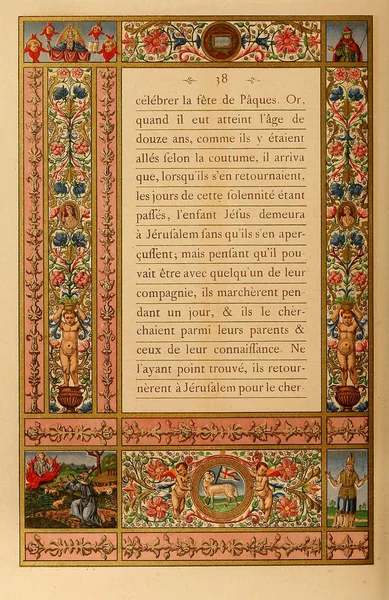 38
célébrer la fête de Pâques. Or,
quand il eut atteint l'âge de
douze ans, comme ils y étaient
allés ſelon la coutume, il arriva
que, lorsqu'ils s'en retournaient,
les jours de cette ſolennité étant
paſſés, l'enfant Jéſus demeura
à Jéruſalem ſans qu'ils s'en aper-
çuſſent; mais penſant qu'il pou-
vait être avec quelqu'un de leur
compagnie, ils marchèrent pen-
dant un jour, & ils le cher-
chaient parmi leurs parents &
ceux de leur connaiſſance. Ne
l'ayant point trouvé, ils retour-
nèrent à Jéruſalem pour le cher